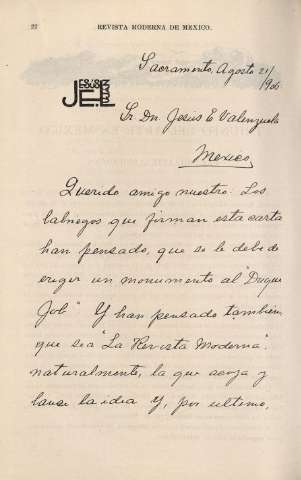 22 REVISTA MODERNA DE MEXICO.
Sacramento, Agosto 21/
906
JE
Sr. Dn. Jesús E Valenzuela
Mexico
Querido amigo nuestro: Los
que firman esta carta
han pensado, que se le debe de
erigir un monumento al "Duque
Job" Y han pensado tambien
que sea "La Revista Moderna".
naturalmente, la que acoja y
lance la idea Y, por ultimo,